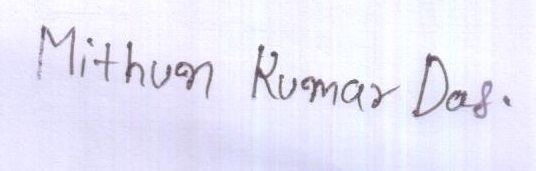 Mithun Kumar Das.